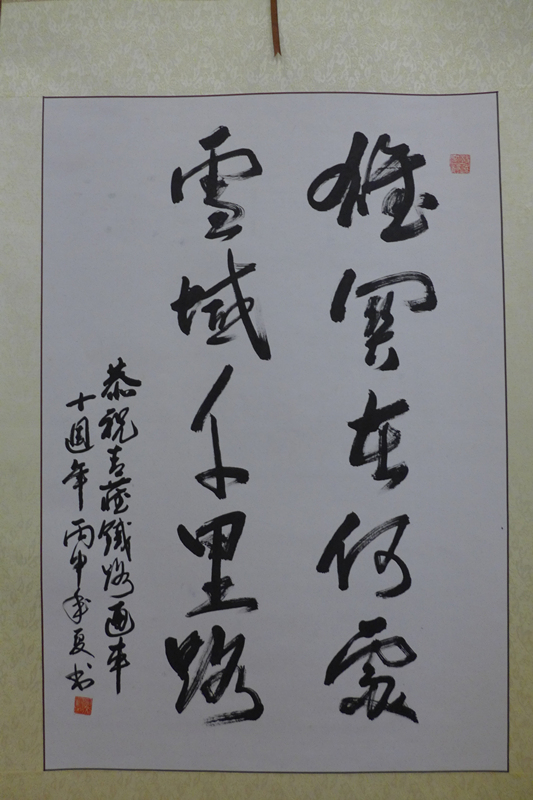 雄関在何處
雪域千里路
恭祝青藏鐵路通車
十週年 丙申年夏書